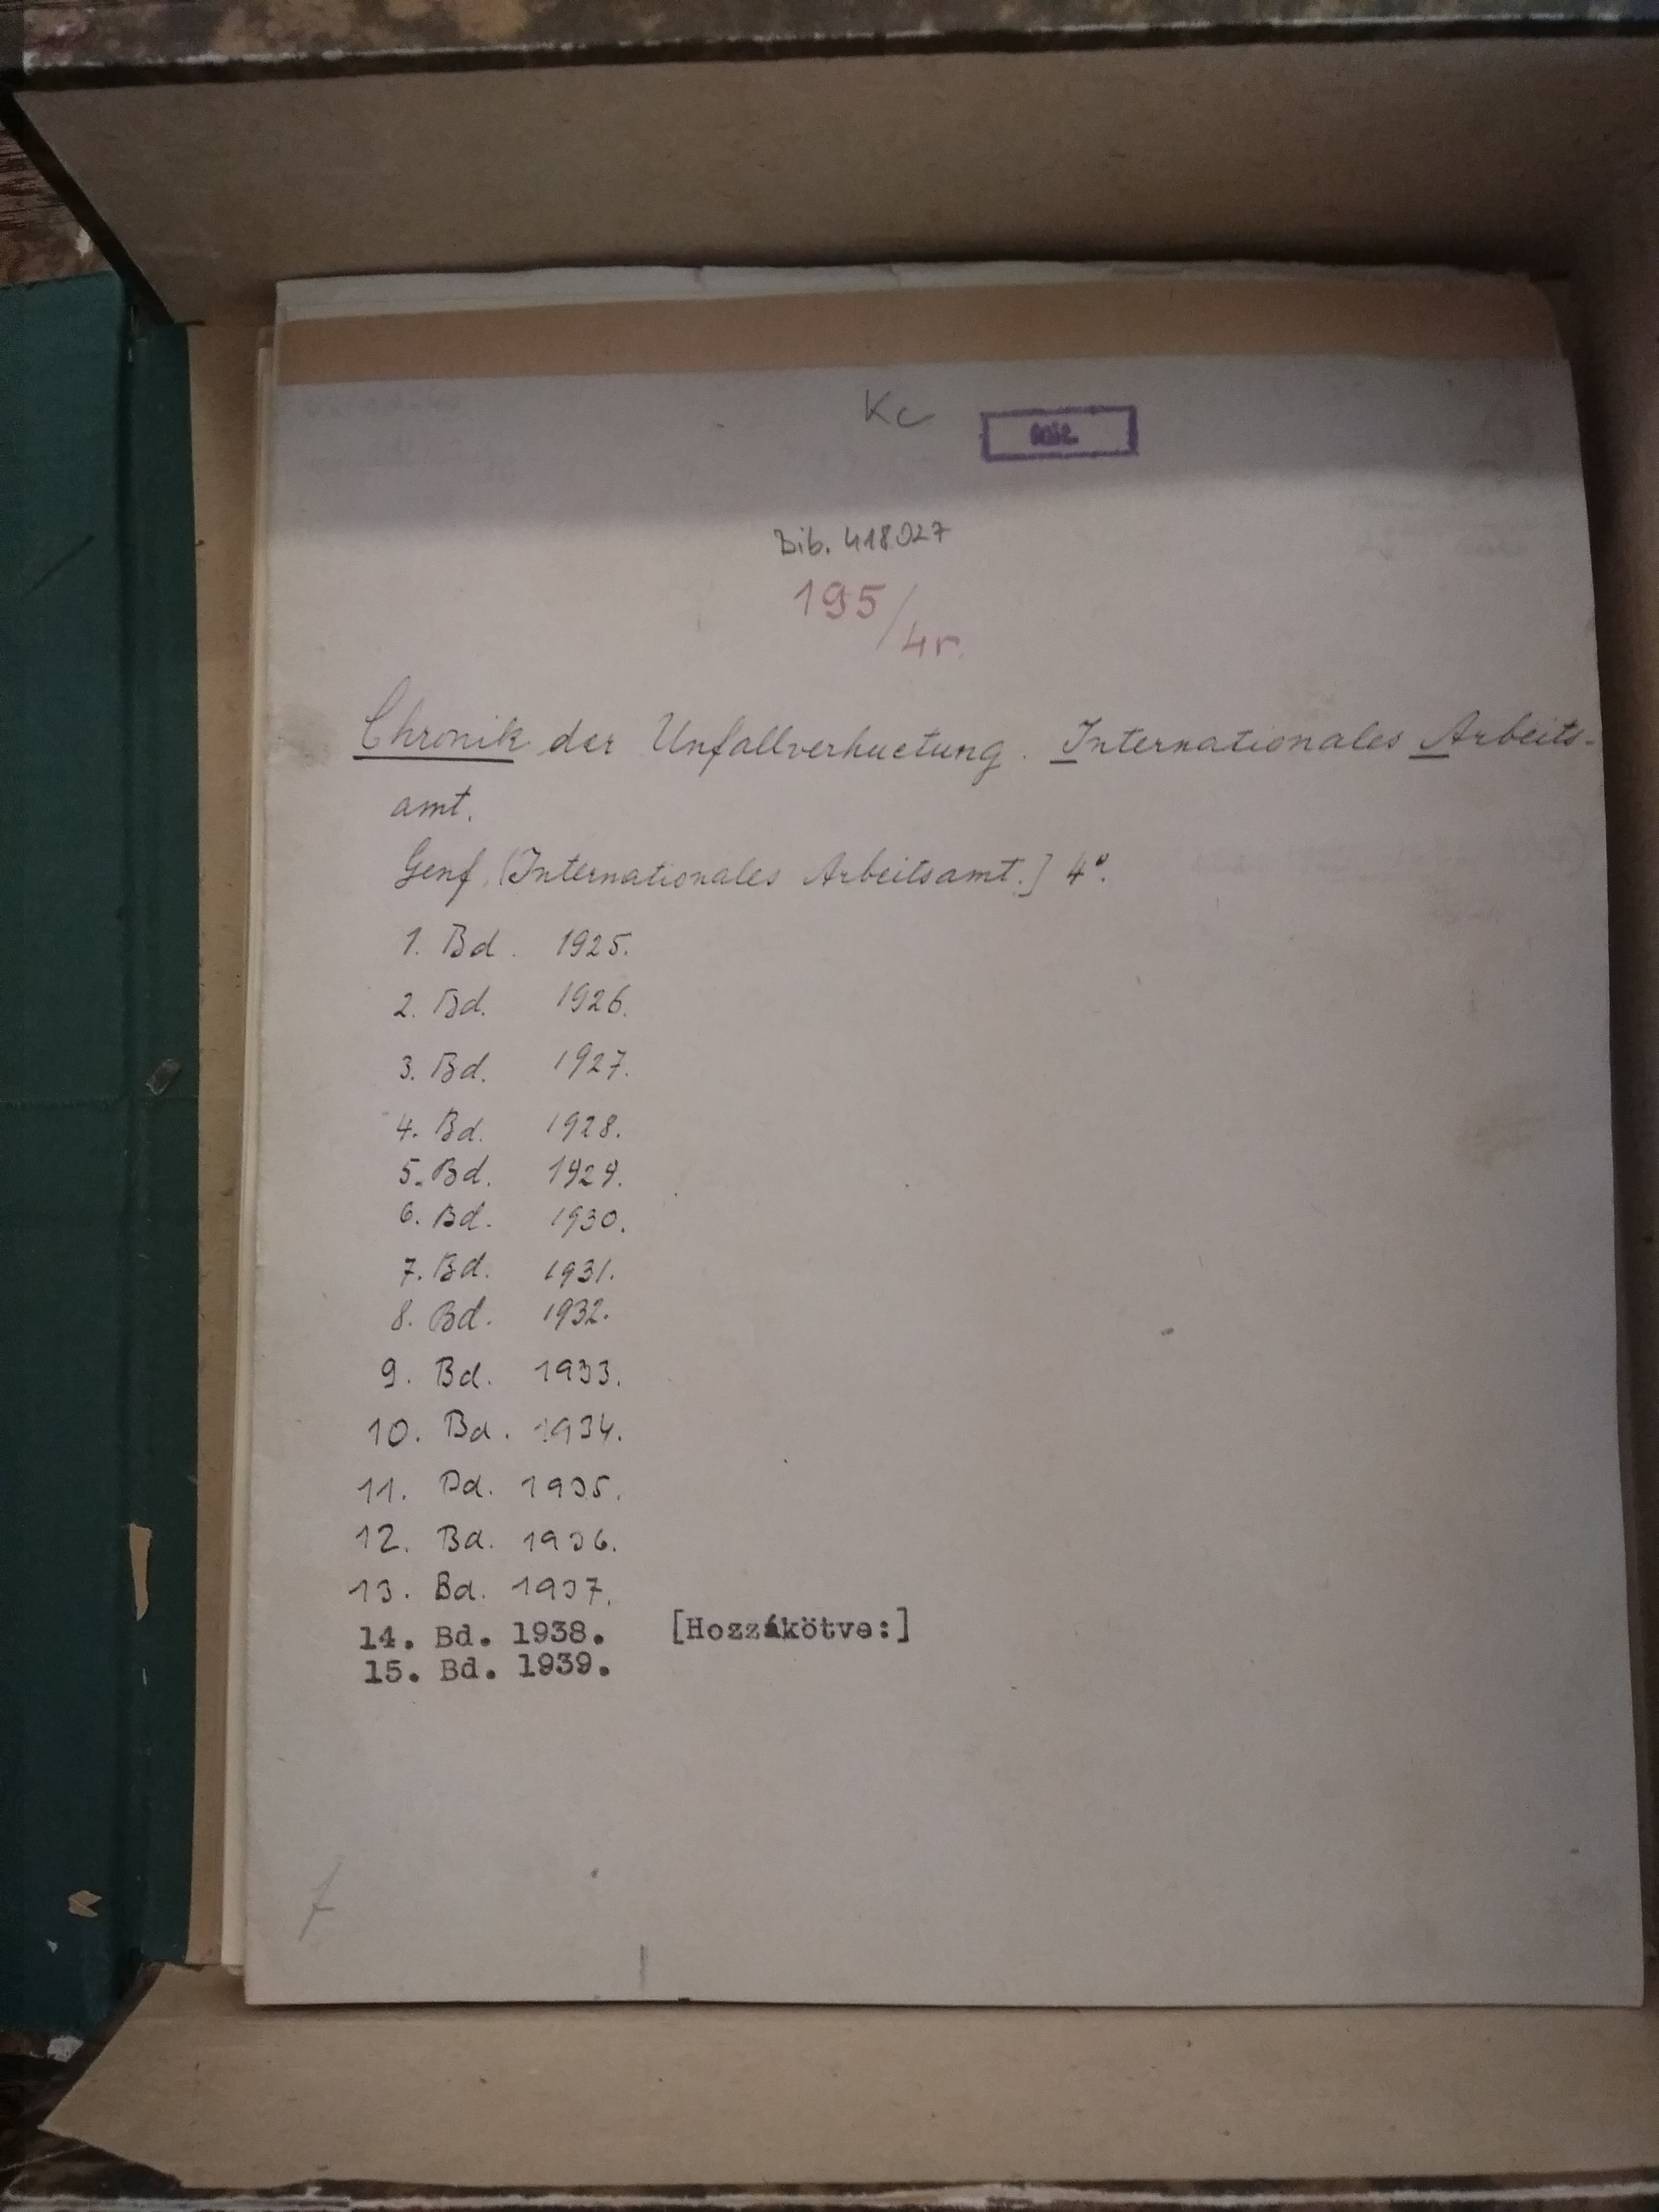 Kc
Bib. 418027
195/4r.
Chronik der Unfallverhuetung. Internationales Arbeits-
amt.
Genf, [Internationales Arbeitsamt.] 4°.
1. Bd. 1925.
2. Bd. 1926.
3. Bd. 1927.
4. Bd. 1928.
5. Bd. 1929.
6. Bd. 1930.
7. Bd. 1931.
8. Bd. 1932.
9. Bd. 1933.
10. Bd. 1934.
11. Bd. 1935.
12. Bd. 1936.
13. Bd. 1937.
14. Bd. 1938. [Hozzákötve:]
15. Bd. 1939.